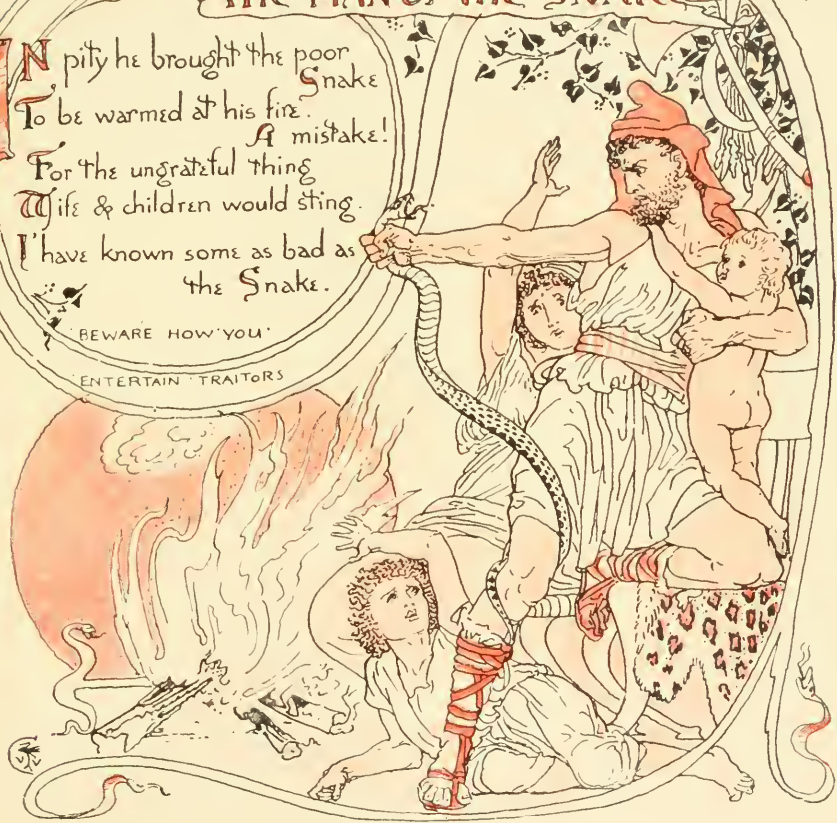 THE MAN & THE SNAKE
IN pity he brought the poor
Snake
To be warmed at his fire.
A mistake!
For the ungrateful thing
Wife & children would sting.
I'have known some as bad as
the Snake.
BEWARE HOW YOU
ENTERTAIN TRAITORS